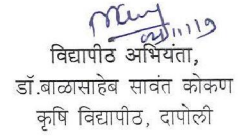 विद्यापीठ अभियंता,
डॉ.बाळासाहेब सावंत कोकण
कृषि विद्यापीठ, दापोली